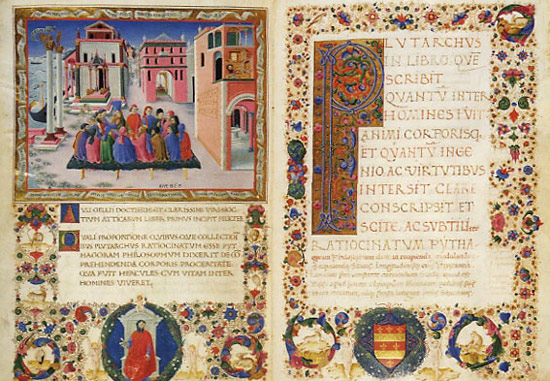 AULI GELLII DOCTISSIMI ET CLARISSIMI NOC
TIUM ATTICARUM LIBER PRIMUS INCIPIT
QUALI PROPORTIONE QUIBUSQUE COLLECTIO
PLUTARCHUS RATIOCINATUM ESSE PYT
HAGORAM PHILOSOPHUM DIXERIT DE CO
PREHENDENDA CORPORIS PROCERITATE
QUA FUIT HERCULES CUM VITAM INTER
HOMINES VIVERET.
PLUTARCHUS
IN LIBRO QUE
SCRIBIT
QUANTU INTER
HOMINES
ANIMI CORPORISQ;
ET QUANTU INGE
NIO AC VIRTUTIBUS
INTERSIT CLARE
CONSCRIPSIT ET
SCITE AC SUBTILI
RATIOCINATUM PYTHA